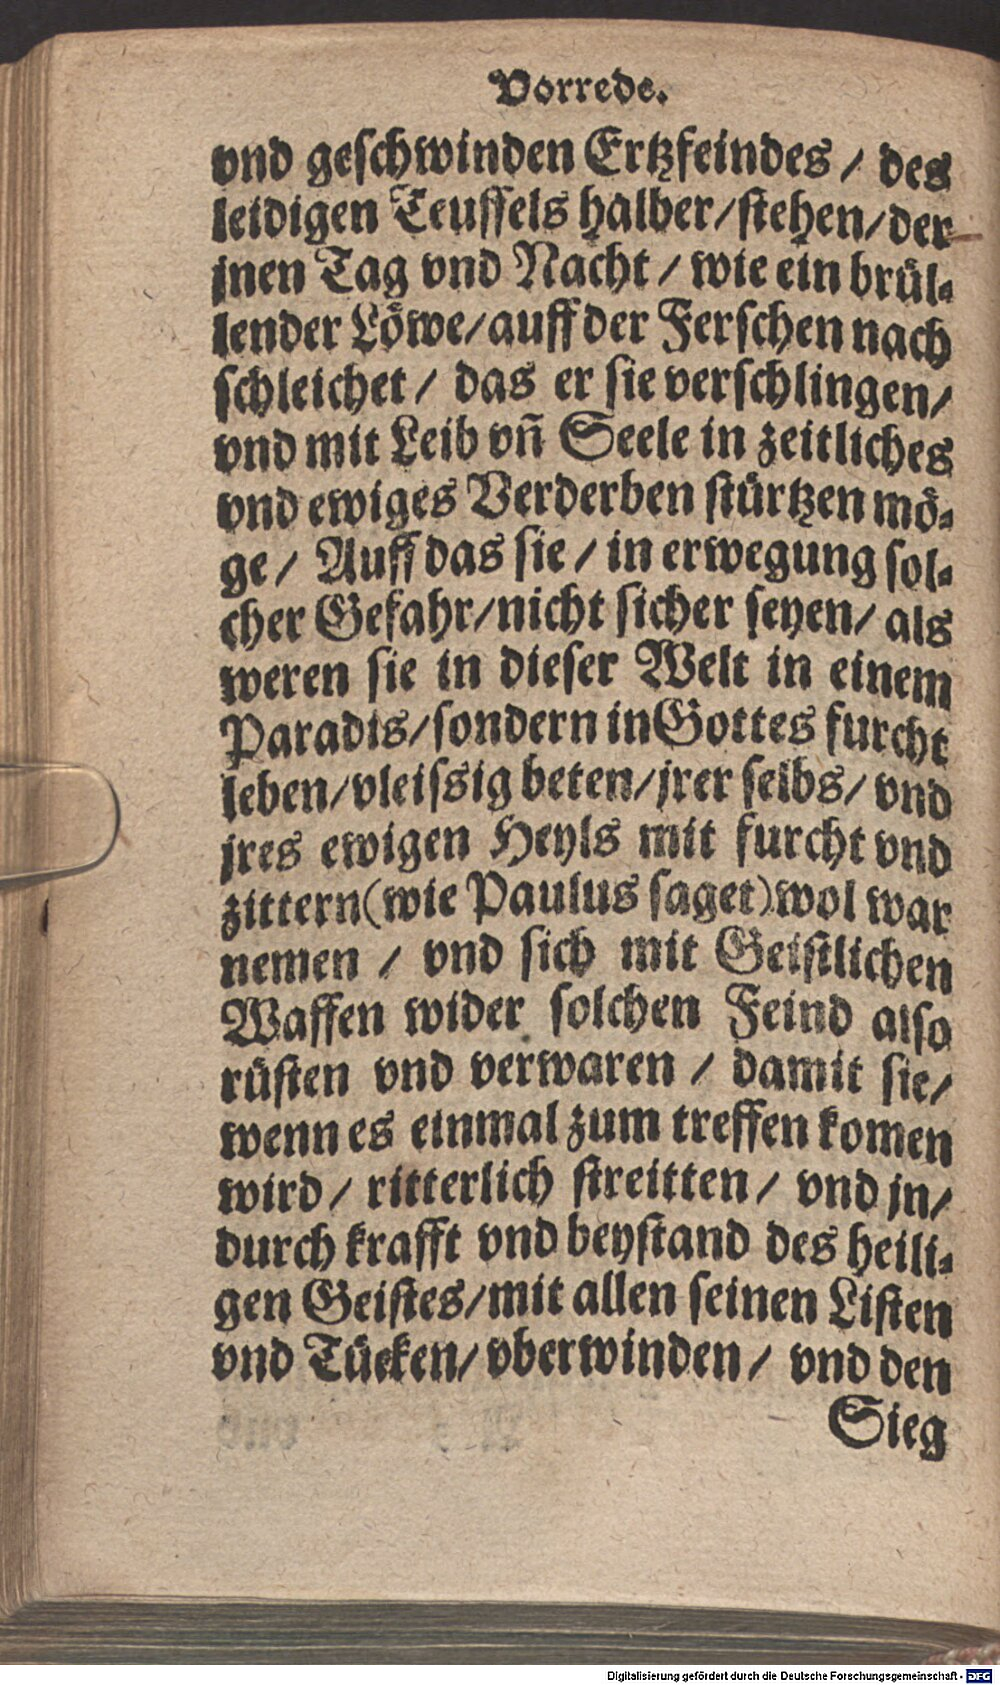 Vorrede.
vnd geschwinden Ertzfeindes / des
leidigen Teuffels halber/stehen/der
jnen Tag vnd Nacht / wie ein brül-
lender Löwe/auff der Ferschen nach
schleichet / das er sie verschlingen/
vnd mit Leib vñ Seele in zeitliches
vnd ewiges Verderben stürtzen mö-
ge / Auff das sie / in erwegung sol-
cher Gefahr/nicht sicher seyen/ als
weren sie in dieser Welt in einem
Paradis/sondern in Gottes furcht
leben/vleissig beten/jrer selbs/ vnd
jres ewigen Heyls mit furcht vnd
zittern(wie Paulus saget)wol war
nemen / vnd sich mit Geistlichen
Waffen wider solchen Feind also
rüsten vnd verwaren / damit sie/
wenn es einmal zum treffen komen
wird/ ritterlich streitten/ vnd jn/
durch krafft vnd beystand des heili-
gen Geistes/mit allen seinen Listen
vnd Tücken/ vberwinden/ vnd den
Sieg
Digitalisierung gefördert durch die Deutsche Forschungsgemeinschaft - DFG